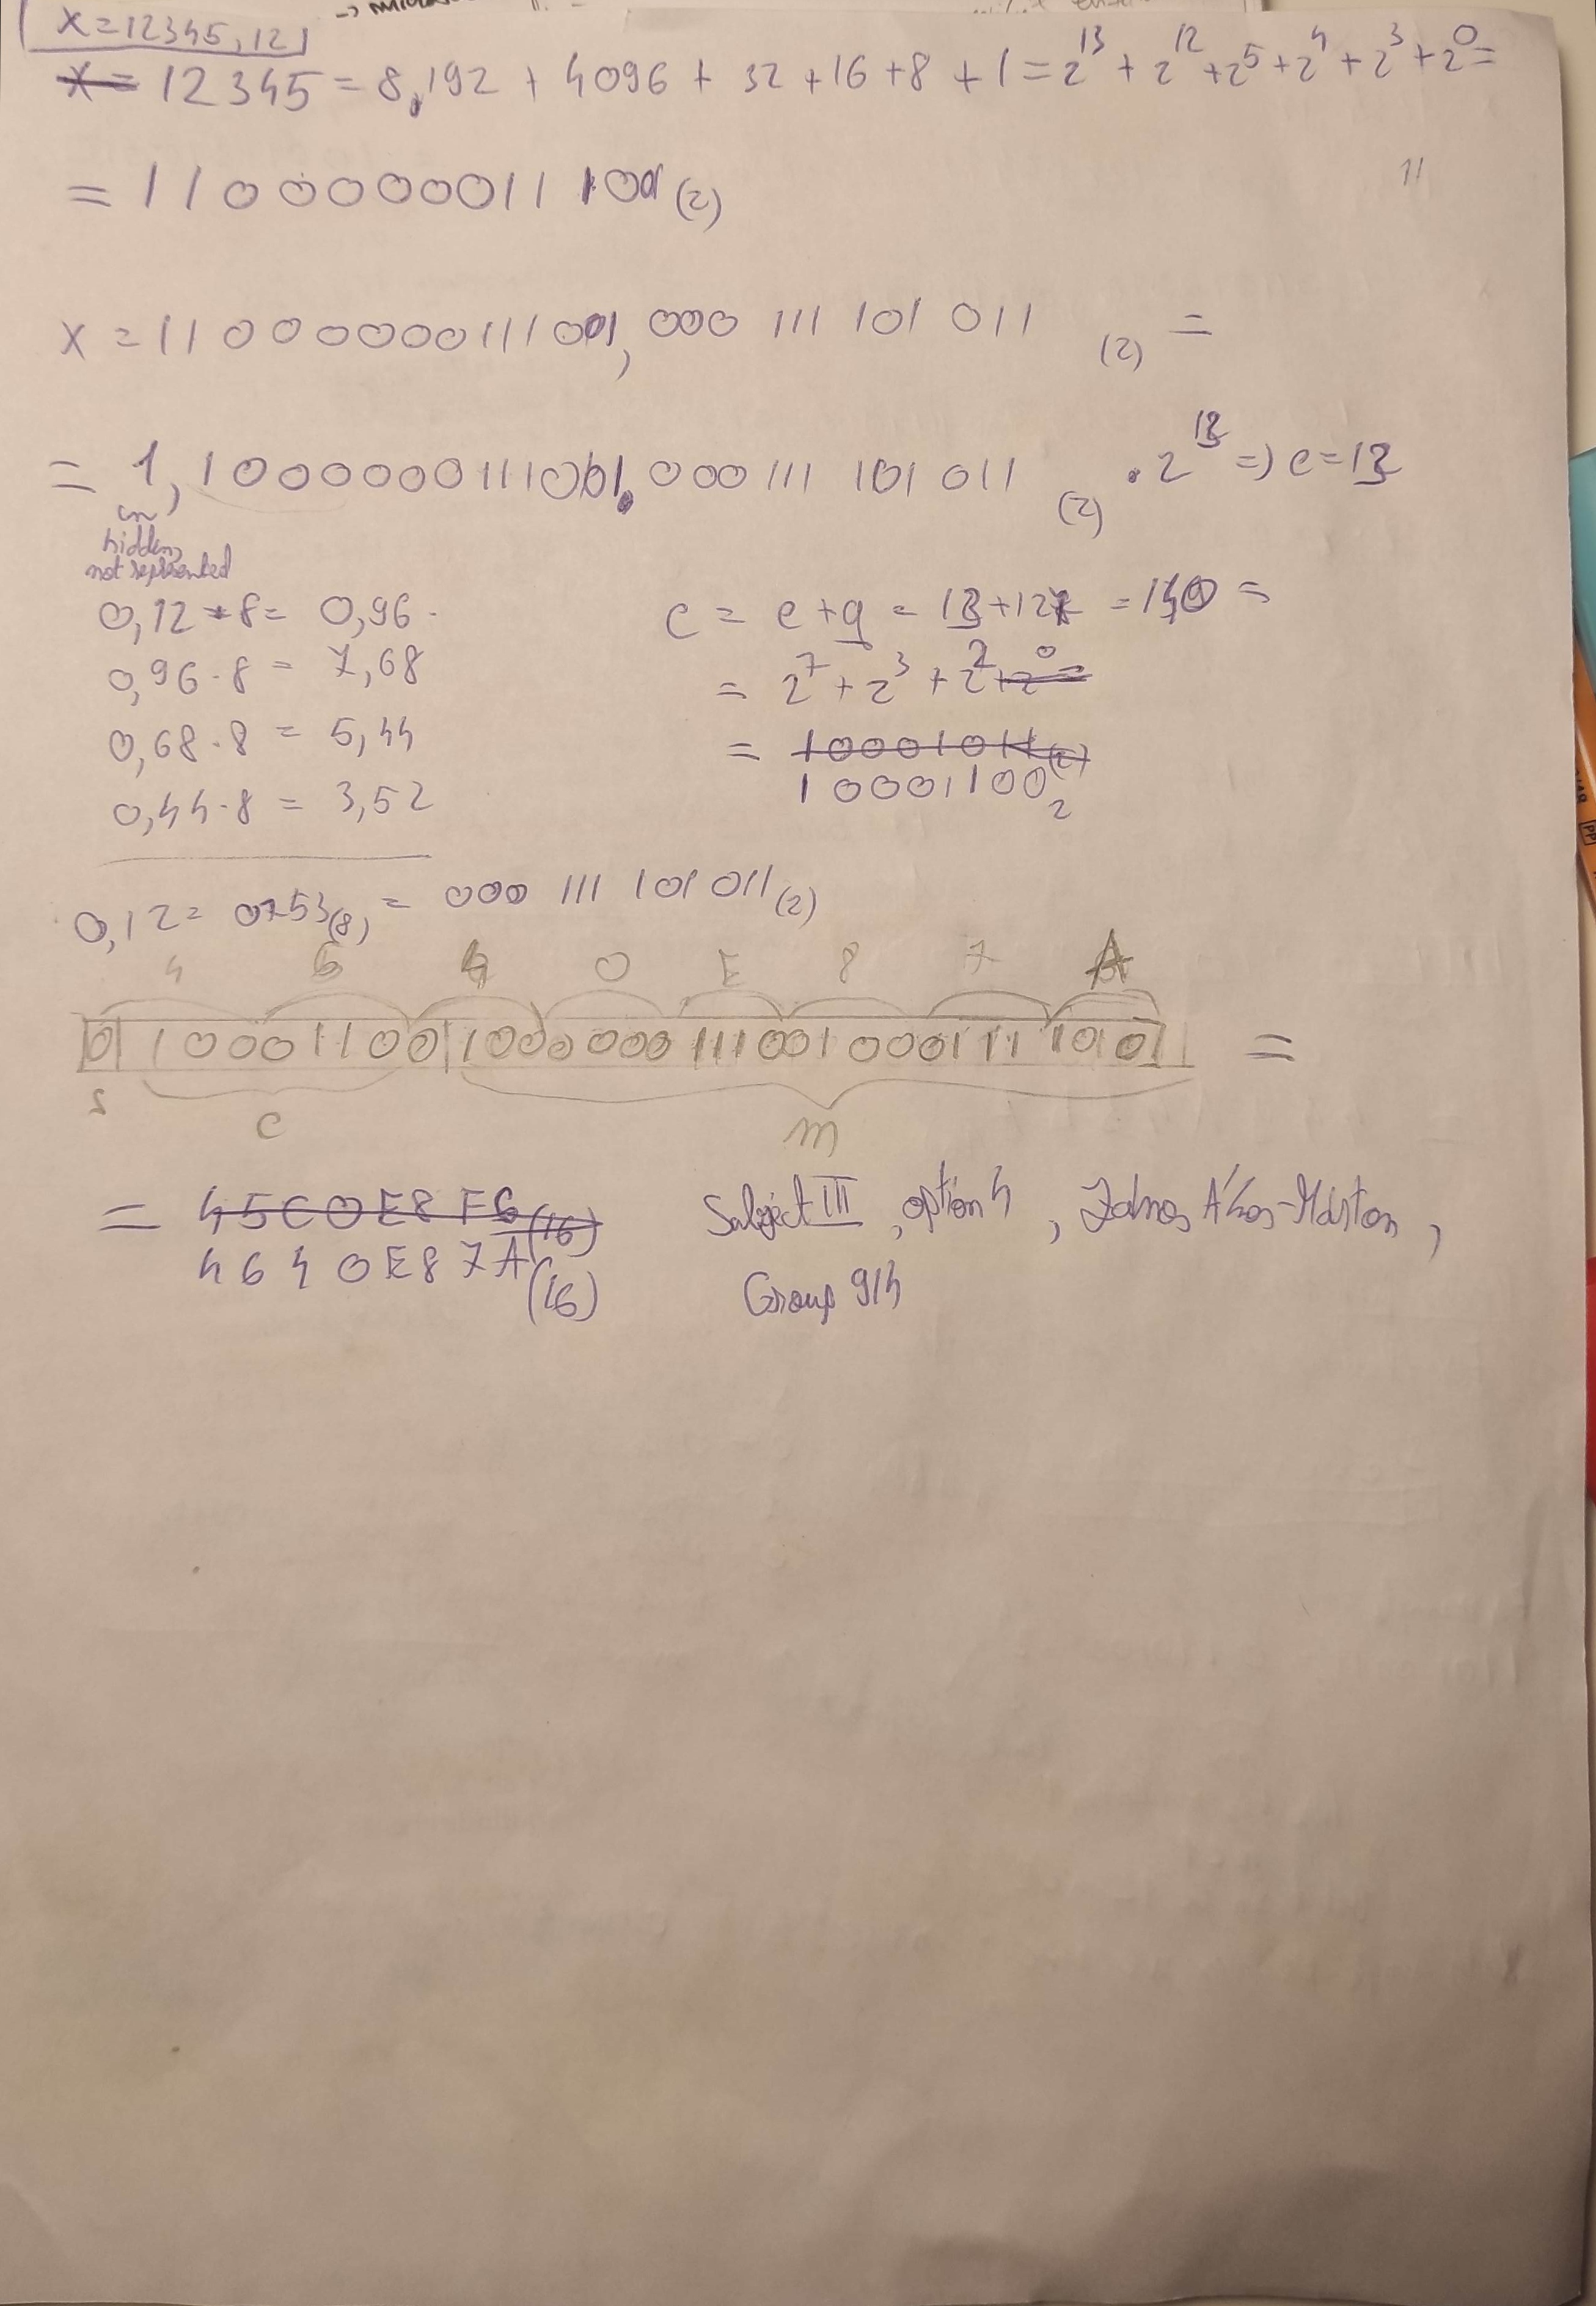 x=12345,12
x= 12345 = 8,192 + 4096 + 32 +16 +8 +1 = 2^13 + 2^12 + 2^5 + 2^4 + 2^3 + 2^0 =
= 11000000111001(2)
11
x = 11000000111001,000 111 101 011 (2) =
= 1,1000000111001.000111 101 011 (2) · 2^13 => e=13
hidden,
not represented
0,12 * 8 = 0,96
0,96 · 8 = 7,68
0,68 · 8 = 5,44
0,44 · 8 = 3,52
c = e + q = 13+127 = 140 =
= 2^7 + 2^3 + 2^2 + 2^0 =
= 10001011(2)
10001100 2
0,12 = 0753(8) = 000 111 101 011(2)
4 6 4 0 E 8 7 A
0 10001100 1000000111001000111101 =
s c m
= 45C0E8F6(16)
4640E87A(16)
Subject III, option 4,
Group 914